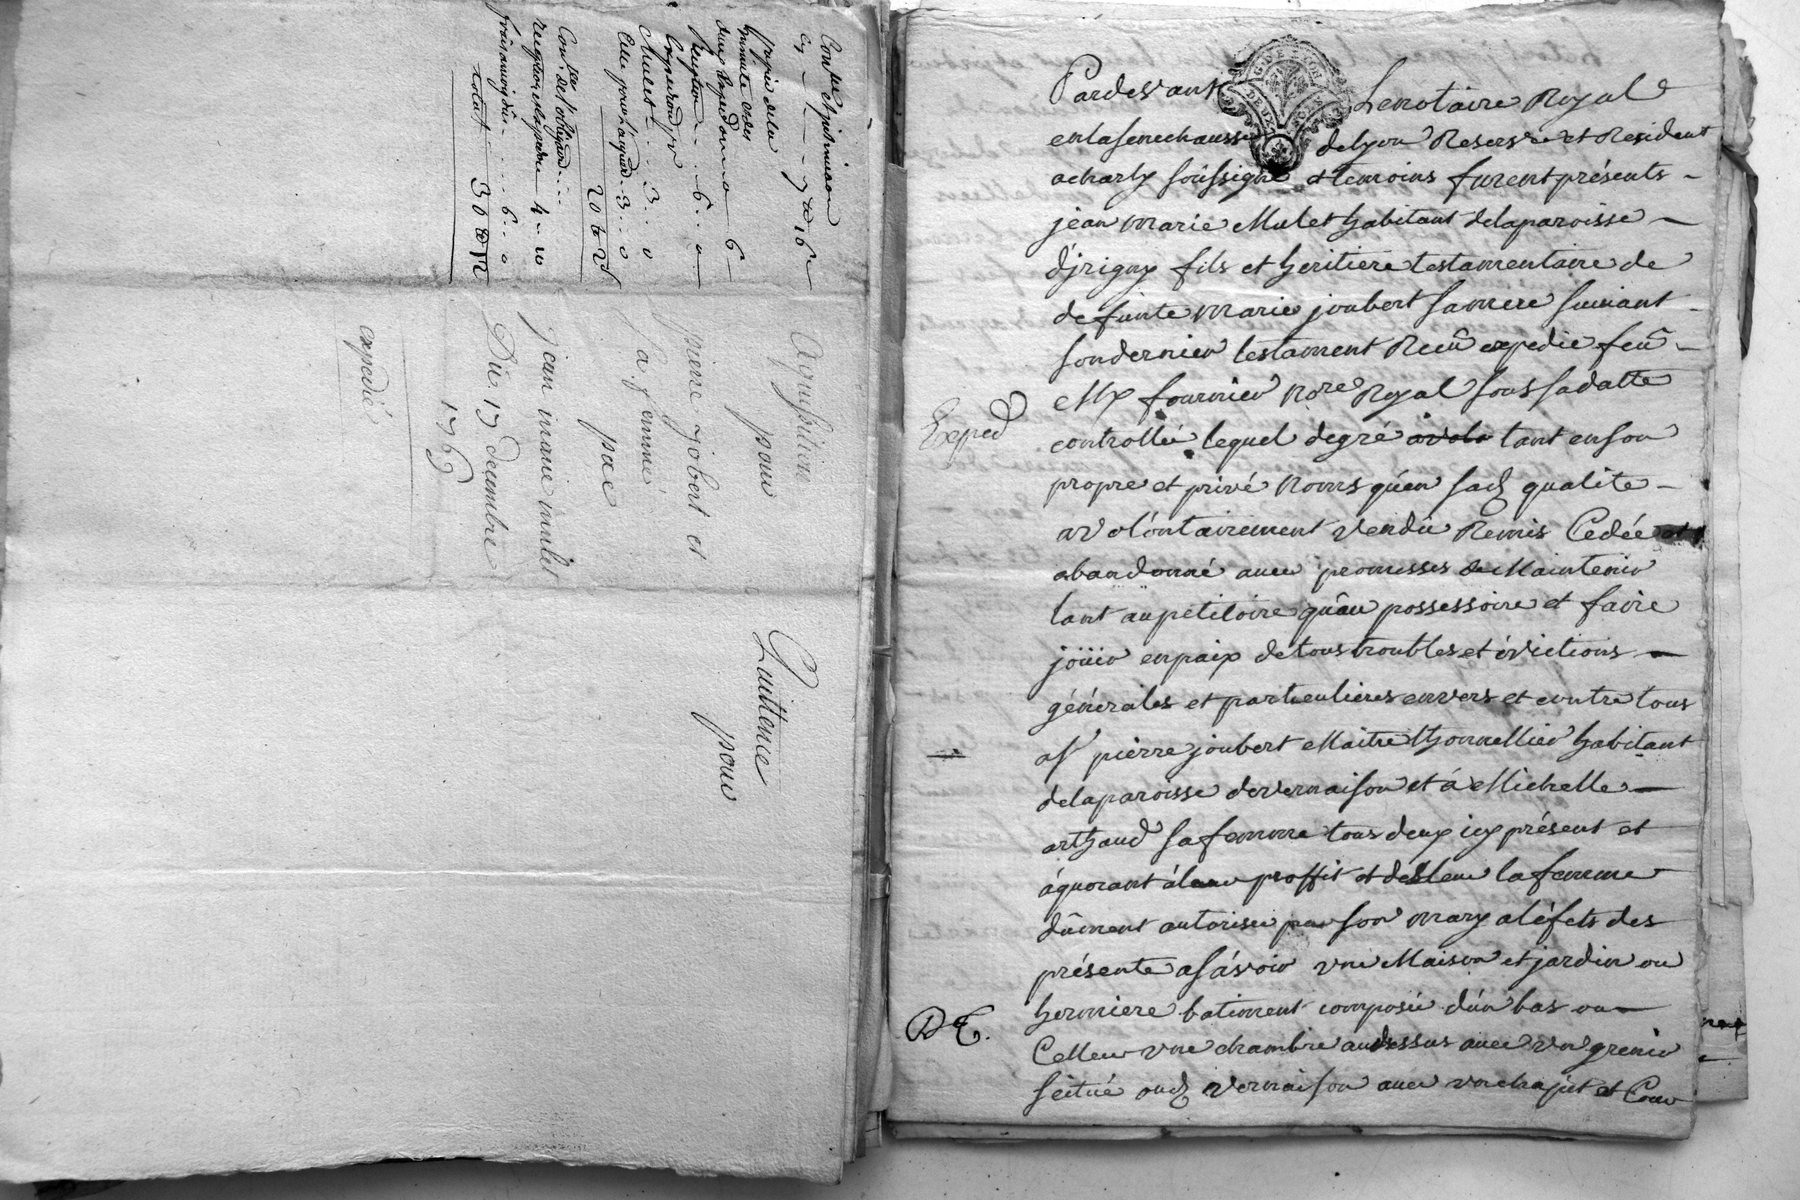 Conlle et jnsinuaon
cy 7 tt 16 s
papier de la
minutte et des
deux expedon 6
Reception 6 .. 0
Mulet .. 3 .. 0
20 tt 2 s
Conlle de l'obligaon
reception et papier 4 .. 10
frais a moy dûs .... 6 .. 0
total 30 tt 12
Aquisition
pour
pierre jobert et
sa femme
par
jean marie mulet
Du 17 decembre
1769
expedié
Quittence
pour
Pardevant Le notaire Royal
en la senechaussé de lyon Reservé et Resident
a charly soussigné et temoins furent présents
jean marie Mulet habitant de la paroisse
d'jrigny fils et heritiere testamentaire de
defunte marie joubert sa mere suivant
son dernier testament Recû expedie feû
Mx fournier Nore Royal sous sa datte
controllée lequel de gré a volo tant en son
propre et privé Noms qu'en sad qualite
a volontairement vendu Remis Cedée et
abandonné avec promesses de Maintenir
tant au petitoire qu'au possessoire et faire
joüir en paix de tous troubles et évictions
générales et particulieres envers et contre tous
a sr pierre joubert Maitre thonnellier habitant
de la paroisse de vernaison et á Michelle
arthaud sa femme tous deux icy présent et
áquorant á leur proffit et de l'eur la femme
dûment autorisée par son mary a l'éfets des
présente a sávoir une Maison et jardin ou
hermiere batiment composée d'un bas ou
Cellier une chambre au dessus avec un grenier
scitué aud vernaison avec un chapit et Cour
Exped
DE.